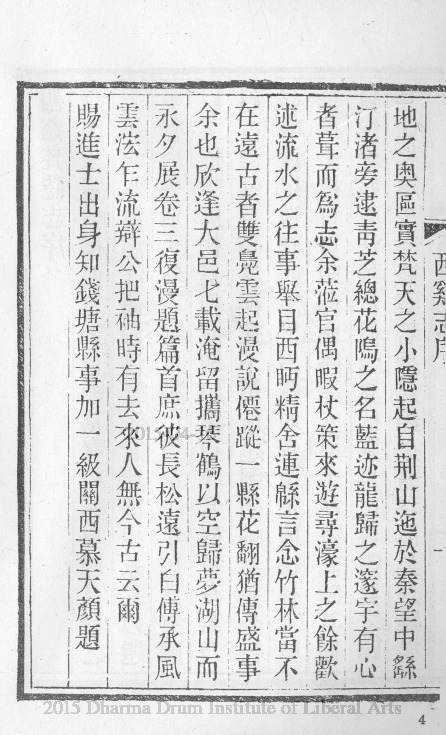 西谿志序
一
地之奥區實梵天之小隱起自荆山迤於秦望中繇
汀渚旁逮靑芝總花隝之名藍迹龍歸之邃宇有心
者葺而為志余蒞官偶暇杖策來遊尋濠上之餘歡
述流水之往事舉目西眄精舍連緜言念竹林當不
在遠古者雙鳧雲起漫說僊蹤一縣花翻猶傳盛事
余也欣逢大邑七載淹留攜琴鶴以空歸夢湖山而
永夕展卷三復漫題篇首庶彼長松遠引白傅承風
雲泫乍流辯公把袖時有去來人無今古云爾
賜進士出身知錢塘縣事加一級關西慕天顏題
2015 Dharma Drum Institute of Liberal Arts
4